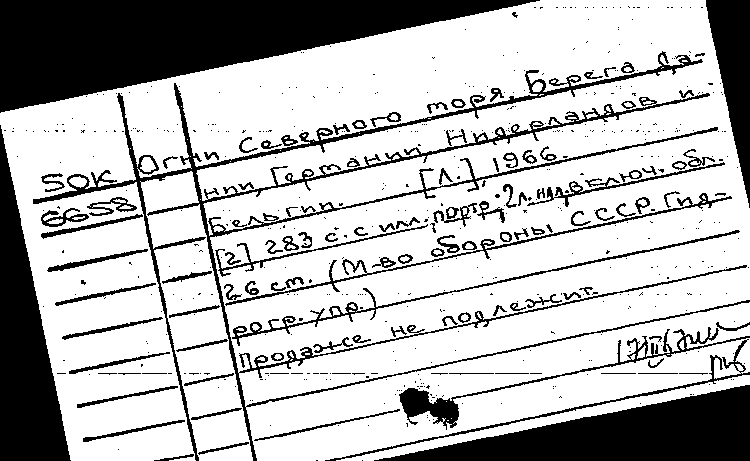 50К Огни Северного моря. Берега Да-
6658 нии, Германии, Нидерландов и
Бельгии. [Л.], 1966.
[2], 283 с. с илл.,
26 см. (М-во обороны СССР. Гид-
рогр. упр.)
Продаже не подлежит.